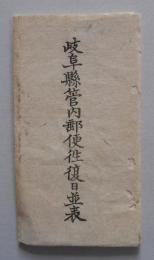 岐阜縣管内郵便徃復日並表